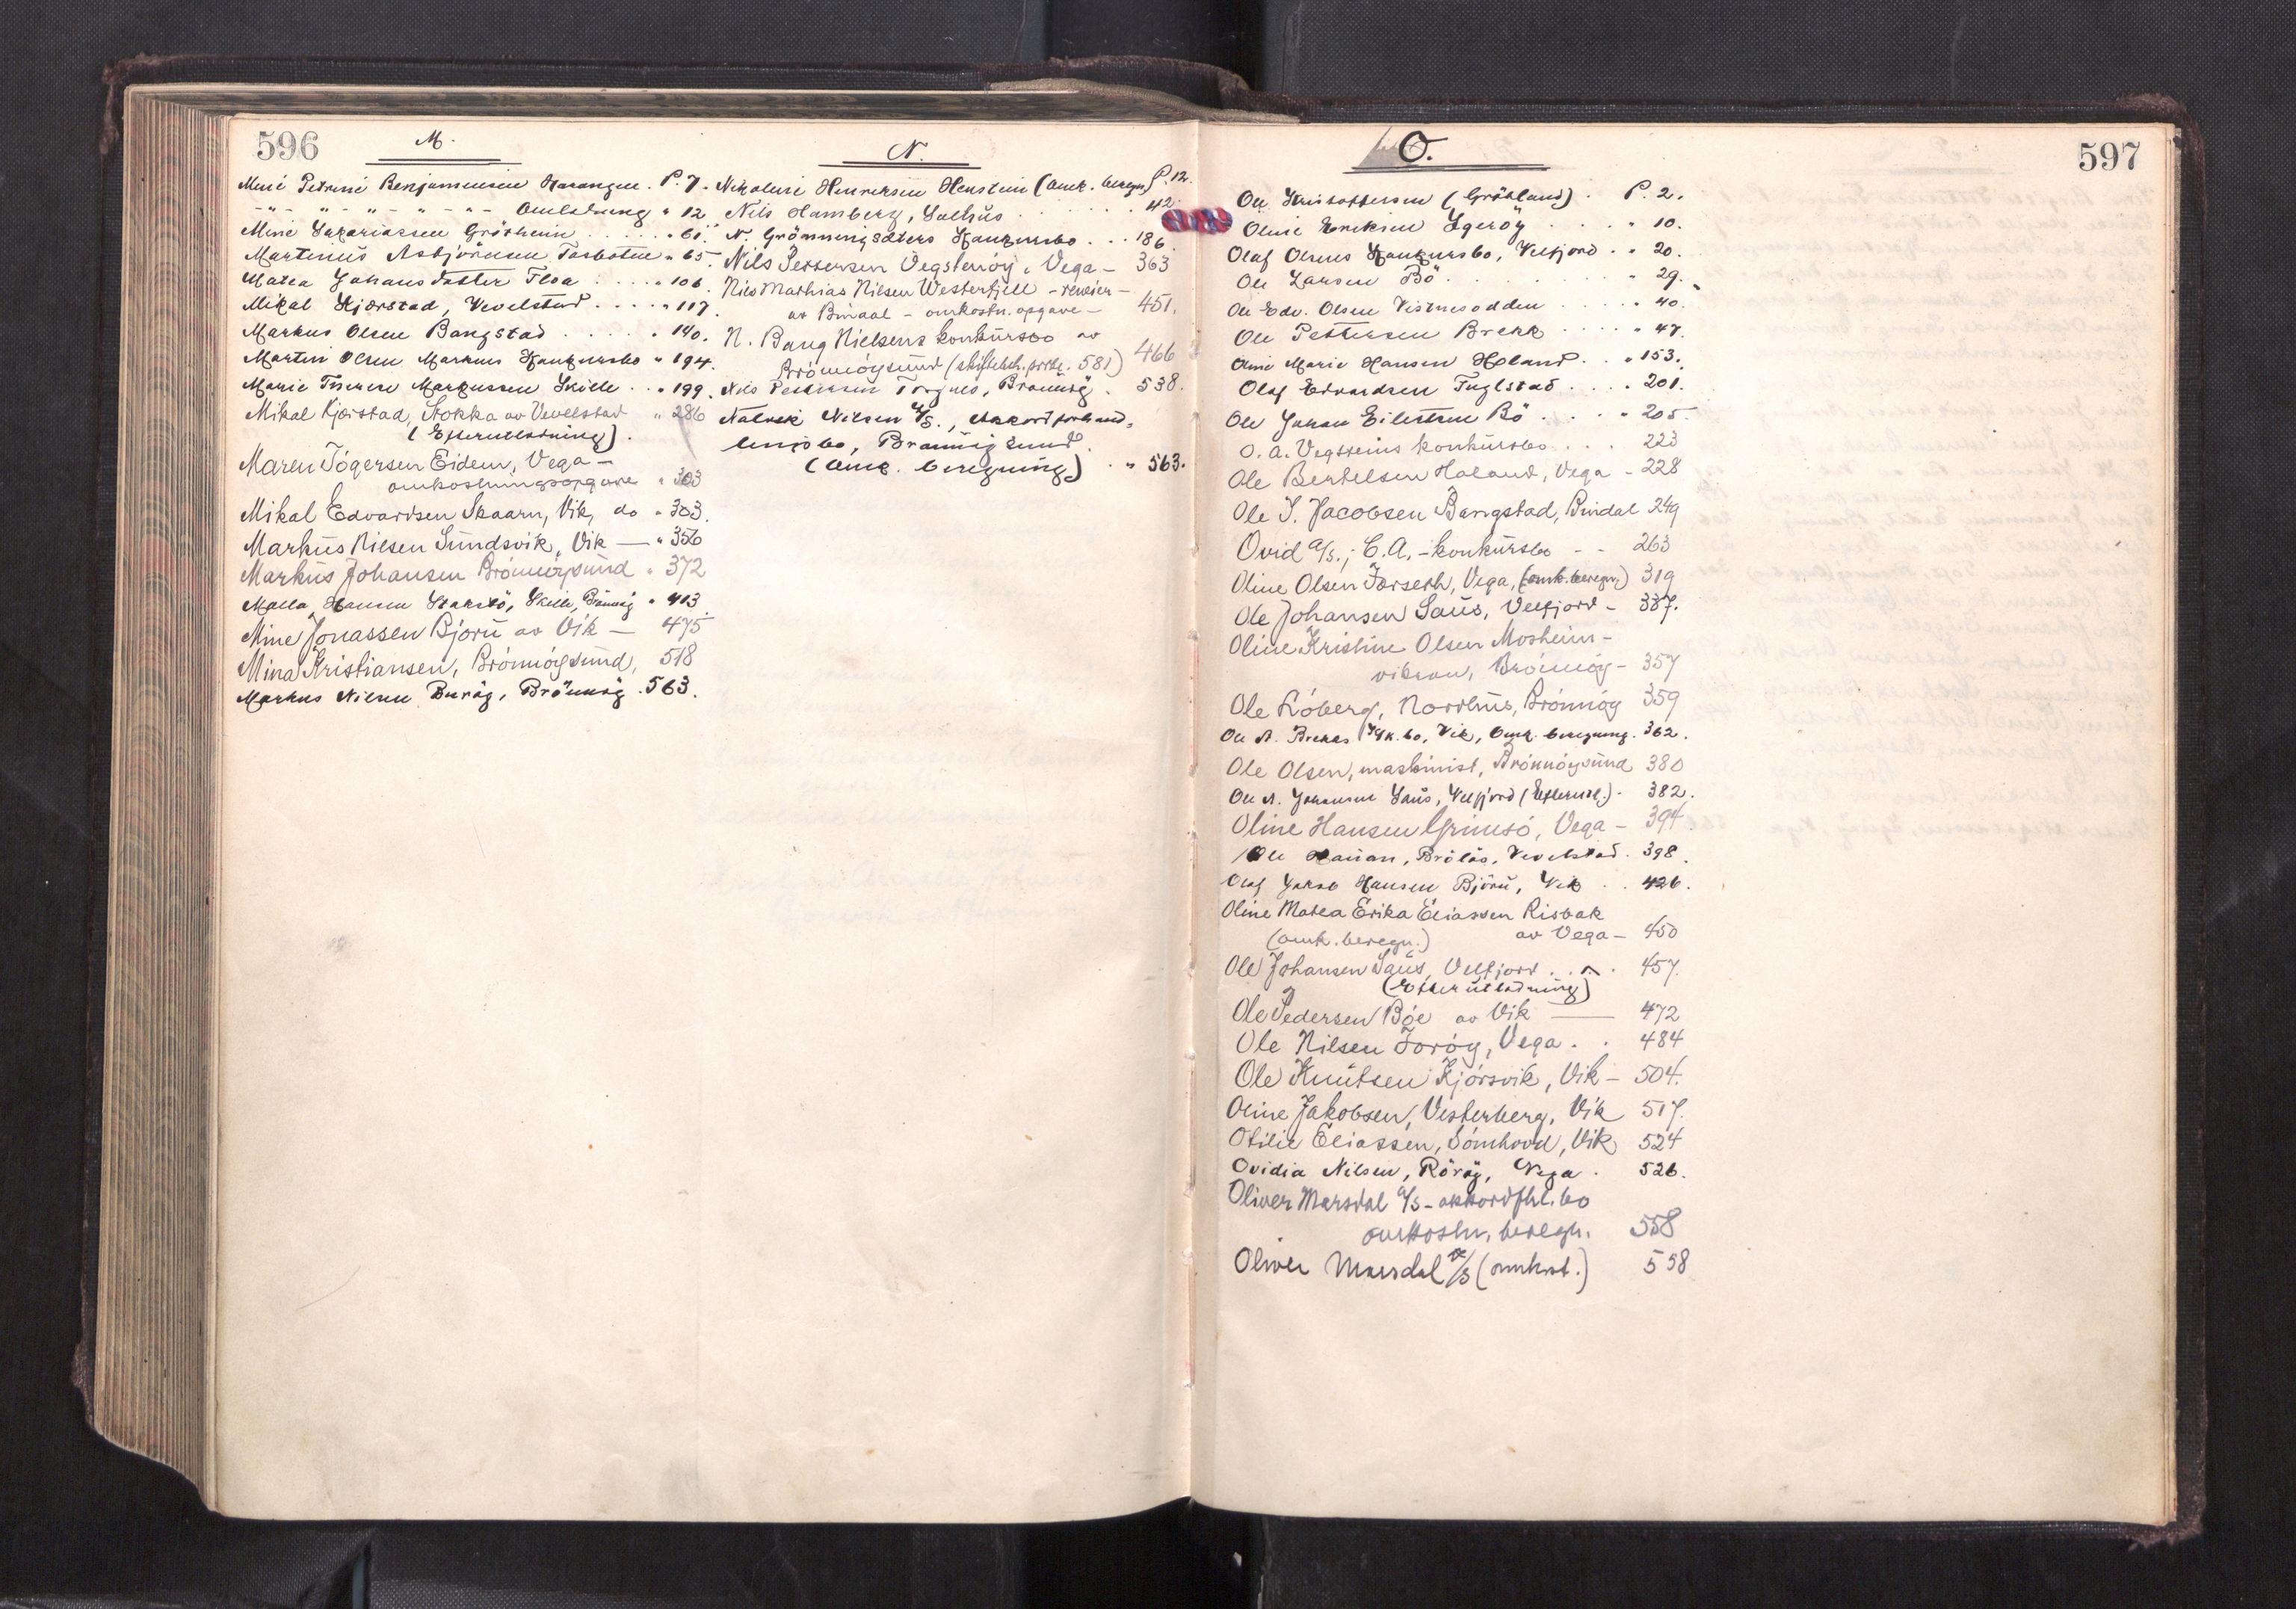 596
M.
Mine Petrine Benjaminsen Horangen . P. 7.
-"- -"- -"- Omlodning " 12
Mine Zakariassen Grötheim . . . " 61.
Martinus Asbjörnsen Torbotne " 65.
Matea Johansdatter Floa . . . . " 106.
Mikal Kjærstad, Vevelstad . . . . " 117.
Markus Olsen Bangstad . . . . . " 140.
Martin Olsen Markus Konkursbo " 194.
Marie Therese Markussen Skille . . " 199.
Mikal Kjærstad, Stokka av Vevelstad " 286
(Efterutlodning).
Maren Tógersen Eidem, Vega –
omkostningsopgave " 303
Mikal Edvardsen Skaarn, Vik, do " 303.
Markus Nilsen Sundsvik, Vik — " 356
Markus Johansen Brónnóysund " 372
Malla Hansen Skille, Brönnöy " 413
Mine Jonassen Bjóru av Vik — 475
Mina Kristiansen, Brónnóysund, 518
Markus Nilsen Buröy, Brönnöy . 563.
N.
Nikoline Henriksen Henstein (Omk. beregn) P. 12.
Nils Hamberg, Salhus . . . . . . " 42.
N. Grönningsæters Konkursbo . . . 186.
Nils Pettersen Vegstenóy, Vega – 363
Nils Mathias Nilsen Westerfjell – revier –
av Bindal – omkostn. opgave – 451.
N. Bang Nielsens konkursbo av
Brónnóysund (skiftebeh. protk. 581) 466
Nils Pedersen Torgnes, Brönnöy . 538.
Nilsen A/S., Akkordforhand-
lingsbo, Brönnöysund.
(Omk. beregning) . " 563.
597
O.
Ole Kristoffersen (Grötland) . P. 2.
Oline Eriksen Ygeröy . . . . " 10.
Olaf Olsens Konkursbo, Velfjord . . 20.
Ole Larsen Bö . . . . . . " 29.
Ole Edv. Olsen Vistnesodden . . . . " 40.
Ole Pettersen Brekk . . . . . " 47.
Oline Marie Hansen Holand . . " 153.
Olaf Edvardsen Fuglstad . . . . 201.
Ole Johan Eilertsen Bö . . . . " 205.
O. A. Vegsteins konkursbo . . . 223
Ole Bertelsen Holand, Vega – 228
Ole I. Jacobsen Bangstad, Bindal 249
Ovid A/S., C.A. – konkursbo – – 263
Oline Olsen Færseth, Vega, (omk. beregn.) 319
Ole Johansen Saus, Velfjord – 337.
Oline Kristine Olsen Mosheim –
vikran, Brónnóy – 357
Ole Lóberg, Nordhus, Brónnóy 359
Ole A. Brekks Kk. bo, Vik, Omk. beregning. 362.
Ole Olsen, maskinist, Brónnóysund 380
Ole A. Johansen Saus, Velfjord (Efterutl.) . 382.
Oline Hansen Grimsó, Vega – 394.
Ole Hanan, Brölös, Vevelstad . 398.
Olaf Jakob Hansen Björu, Vik . . 426.
Oline Matea Erika Eliassen Risbak
(omk. beregn.) av Vega – 450
Ole Johansen Saus, Velfjord . . . 457.
(Efterutlodning)
Ole Pedersen Bóe av Vik — 472
Ole Nilsen Toróy, Vega . . 484
Ole Knutsen Kjórsvik, Vik – 504.
Oline Jakobsen, Vesterberg, Vik 517.
Otilie Eliassen, Sómhovd, Vik 524
Ovidia Nilsen, Röröy, Vega . 526.
Oliver Marsdal A/S – akkordfhl. bo
omkostn. beregn. 558
Oliver Marsdal A/S (omkost.) 558